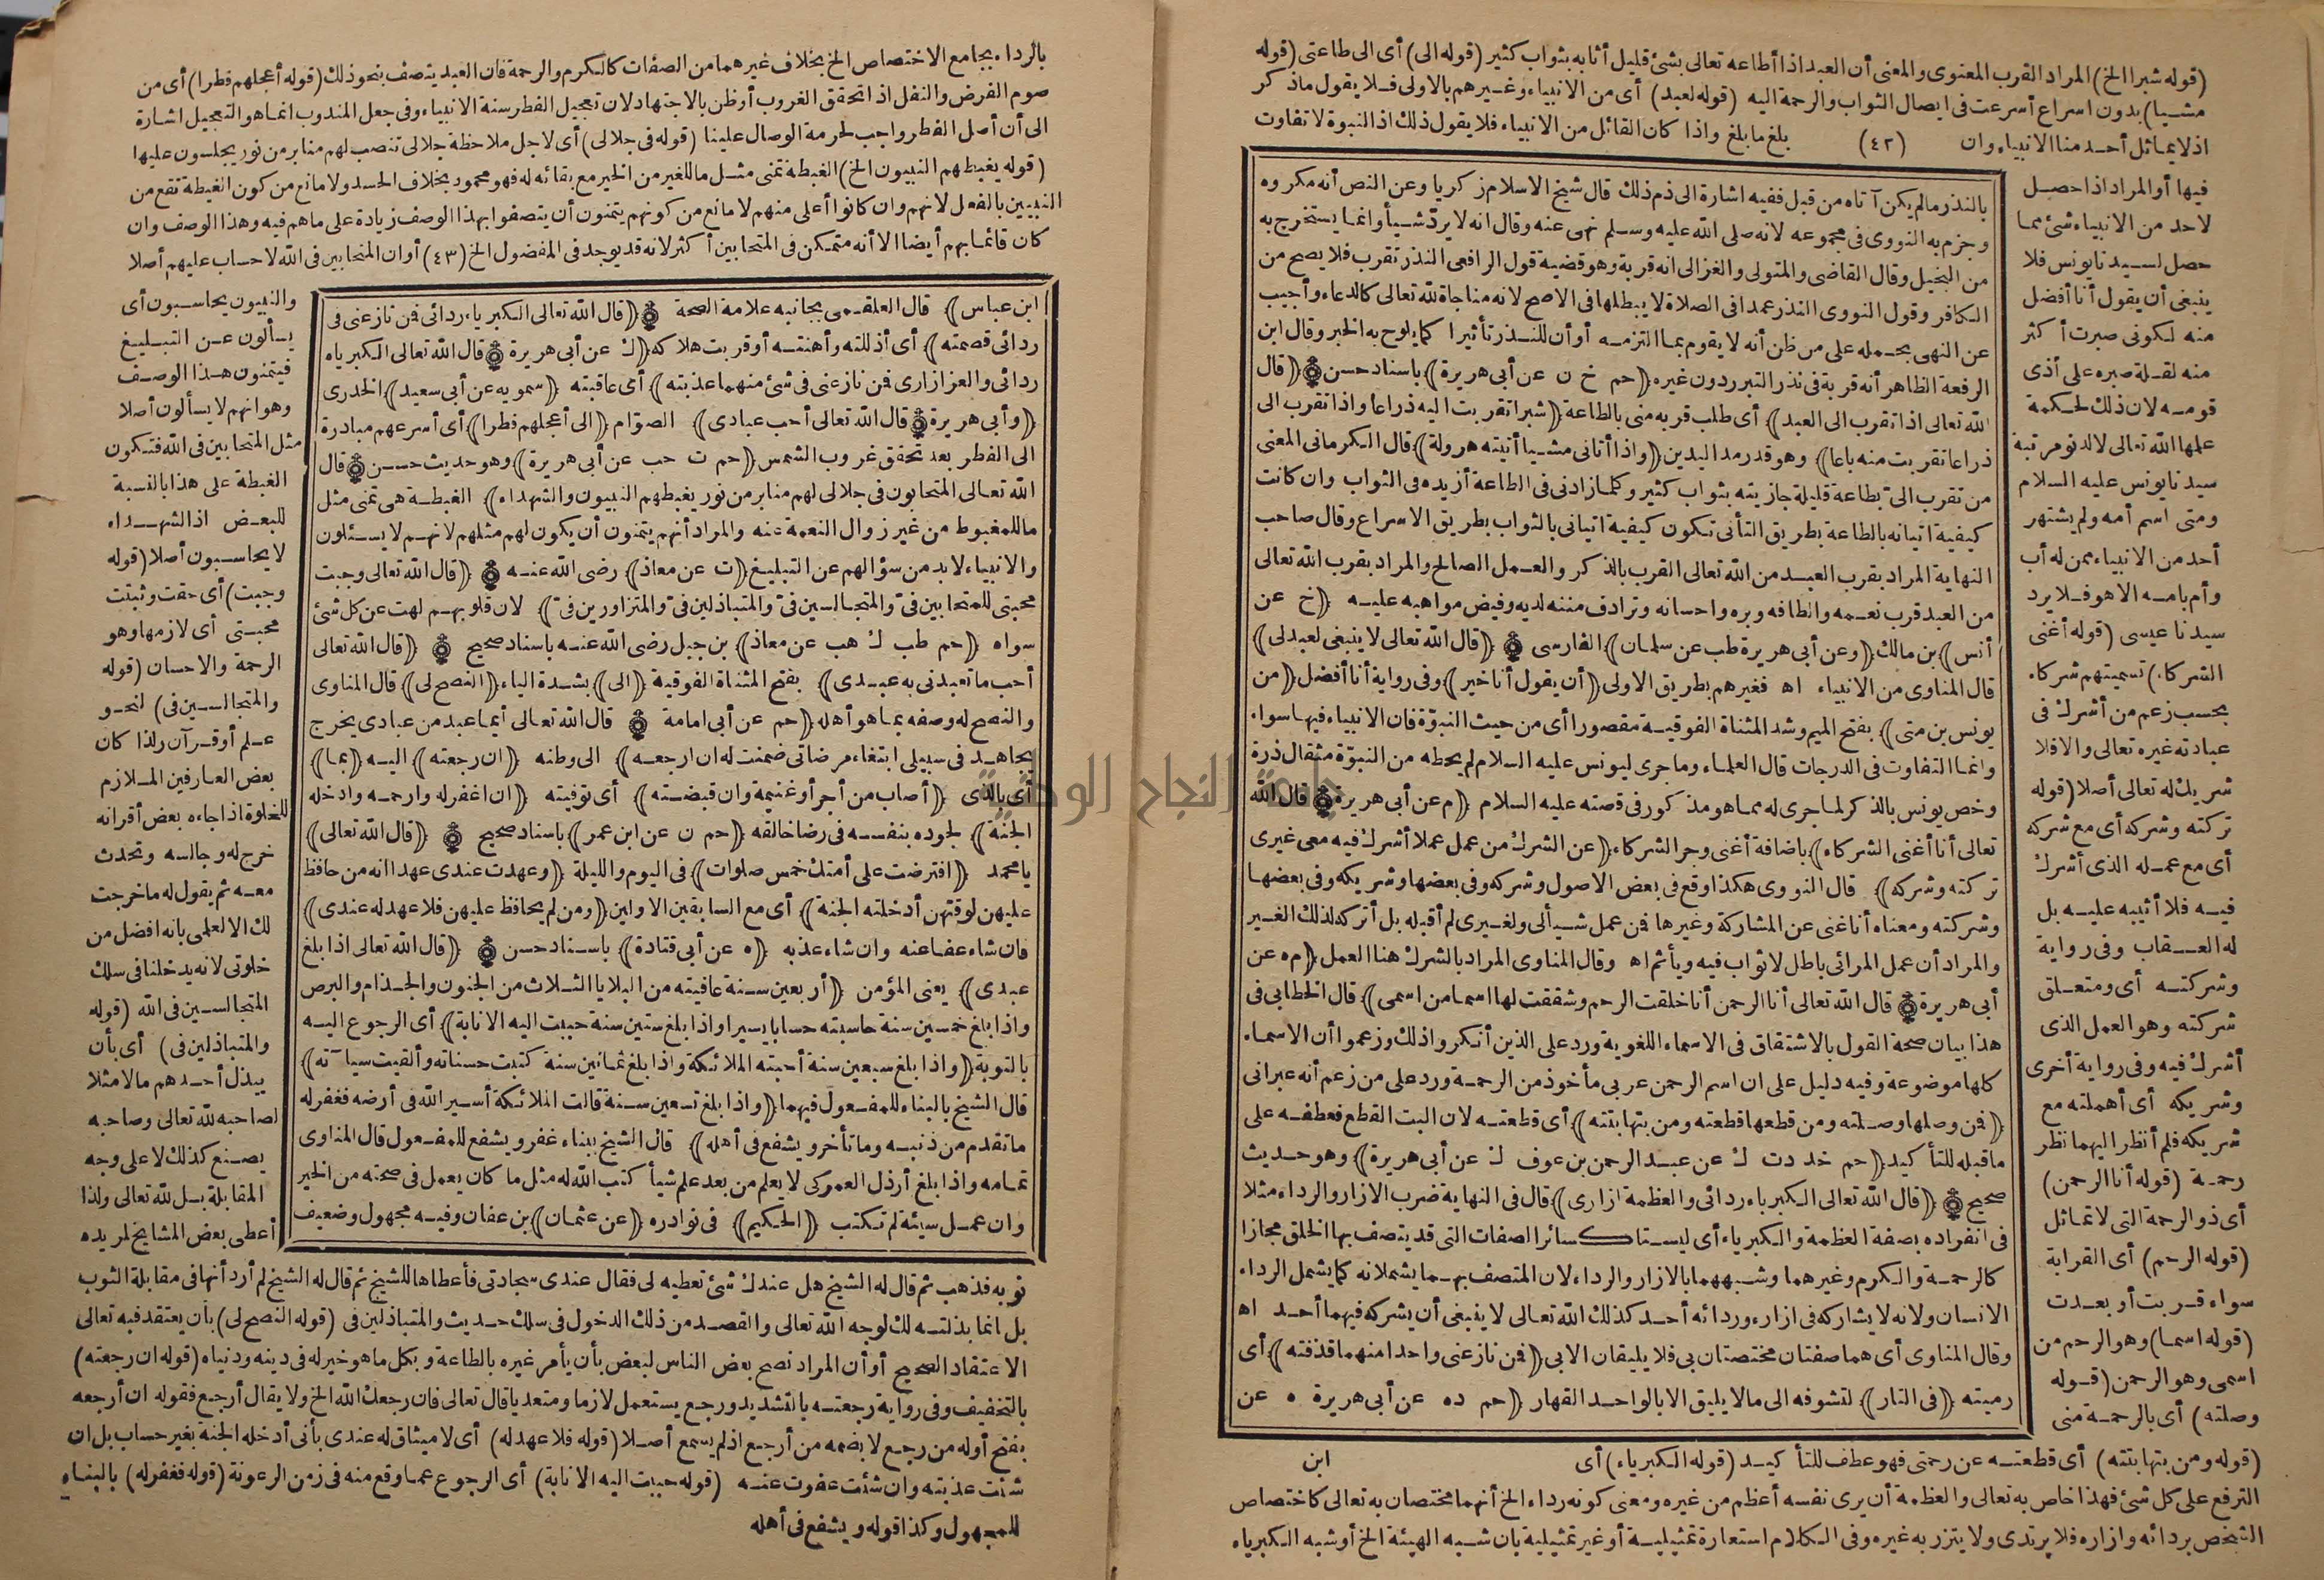 (قوله شبرا الخ) المراد القرب المعنوى والمعنى أن العبد اذا أطاعه تعالى بشئ قليل أثابه بثواب كثير (قوله الى) أى الى طاعتى (قوله
مشيا) بدون اسراع أسرعت فى ايصال الثواب والرحمة اليه (قوله لعبد) أى من الانبياء وغيرهم بالاولى فلا يقول ماذكر
اذلا يماثل أحد منا الانبياء وان (٤٢) بلغ ما بلغ واذا كان القائل من الانبياء فلا يقول ذلك اذ النبوة لا تفاوت
فيها أو المراد اذا حصل
لاحد من الانبياء شئ مما
حصل لسيدنا يونس فلا
ينبغى أن يقول أنا أفضل
منه لكونى صبرت أكثر
منه لقلة صبره على أذى
قومه لان ذلك لحكمة
علمها الله تعالى لا لدنو مرتبة
سيدنا يونس عليه السلام
ومتى اسم أمه ولم يشتهر
أحد من الانبياء ممن له أب
وأم بامه الا هو فلا يرد
سيدنا عيسى (قوله أغنى
الشركاء) تسميتهم شركاء
بحسب زعم من أشرك فى
عبادته غيره تعالى والا فلا
شريك له تعالى أصلا (قوله
تركته وشركه أى مع شركه
أى مع عمله الذى أشرك
فيه فلا أثيبه عليه بل
له العقاب وفى رواية
وشركته أى ومتعلق
شركته وهو العمل الذى
أشرك فيه وفى رواية أخرى
وشريكه أى أهملته مع
شريكه فلم أنظر اليهما نظر
رحمة (قوله أنا الرحمن)
أى ذو الرحمة التى لا تماثل
(قوله الرحم) أى القرابة
سواء قربت أو بعدت
(قوله اسما) وهو الرحم من
اسمى وهو الرحمن (قوله
وصلته) أى بالرحمة منى
بالنذر مالم يكن آتاه من قبل ففيه اشارة الى ذم ذلك قال شيخ الاسلام زكريا وعن النص أنه مكروه
وجزم به النووى فى مجموعه لانه صلى الله عليه وسلم نهى عنه وقال انه لا يردّ شيأ وانما يستخرج به
من البخيل وقال القاضى والمتولى والغزالى انه قربة وهو قضية قول الرافعى النذر تقرب فلا يصح من
الكافر وقول النووى النذر عمدا فى الصلاة لا يبطلها فى الاصح لانه مناجاة لله تعالى كالدعاء وأجيب
عن النهى بحمله على من ظن أنه لا يقوم بما التزمه أو أن للنذر تأثيرا كما يلوح به الخبر وقال ابن
الرفعة الظاهر أنه قربة فى نذر التبرر دون غيره (حم خ ن عن أبى هريرة) باسناد حسن (قال
الله تعالى اذا تقرب الى العبد) أى طلب قربه منى بالطاعة (شبرا تقربت اليه ذراعا واذا تقرب الى
ذراعا تقربت منه باعا) وهو قدر مد اليدين (واذا أتانى مشيا أتيته هرولة) قال الكرمانى المعنى
من تقرب الىّ بطاعة قليلة جازيته بثواب كثير وكلما زادنى فى الطاعة أزيده فى الثواب وان كانت
كيفية اتيانه بالطاعة بطريق التأنى تكون كيفية اتيانى بالثواب بطريق الاسراع وقال صاحب
النهاية المراد بقرب العبد من الله تعالى القرب بالذكر والعمل الصالح والمراد بقرب الله تعالى
من العبد قرب نعمه وألطافه وبره واحسانه وترادف مننه لديه وفيض مواهبه عليه (خ عن
أنس) بن مالك (وعن أبى هريرة طب عن سلمان) الفارسى (قال الله تعالى لا ينبغى لعبد لى)
قال المناوى من الانبياء اه فغيرهم بطريق الاولى (أن يقول أنا خير) وفى رواية أنا أفضل (من
يونس بن متى) بفتح الميم وشد المثناة الفوقية مقصورا أى من حيث النبوّة فان الانبياء فيها سواء
وانما التفاوت فى الدرجات قال العلماء وماجرى ليونس عليه السلام لم يحطه من النبوّة مثقال ذرة
وخص يونس بالذكر لما جرى له مما هو مذكور فى قصته عليه السلام (م عن أبى هريرة) قال الله
تعالى أنا أغنى الشركاء) باضافة أغنى وجر الشركاء (عن الشرك من عمل عملا أشرك فيه معى غيرى
تركته وشركه) قال النووى هكذا وقع فى بعض الاصول وشركه وفى بعضها وشريكه وفى بعضها
وشركته ومعناه أنا غنى عن المشاركة وغيرها فمن عمل شيأ لى ولغيرى لم أقبله بل أتركه لذلك الغير
والمراد أن عمل المرائى باطل لا ثواب فيه ويأثم اه وقال المناوى المراد بالشرك هنا العمل (م ه عن
أبى هريرة) قال الله تعالى أنا الرحمن أنا خلقت الرحم وشققت لها اسما من اسمى) قال الخطابى فى
هذا بيان صحة القول بالاشتقاق فى الاسماء اللغوية ورد على الذين أنكروا ذلك وزعموا أن الاسماء
كلها موضوعة وفيه دليل على ان اسم الرحمن عربى مأخوذ من الرحمة ورد على من زعم أنه عبرانى
(فمن وصلها وصلته ومن قطعها قطعته ومن بتها بتته) أى قطعته لان البت القطع فعطفه على
ما قبله للتأكيد (حم خد دت ك عن عبد الرحمن بن عوف ك عن أبى هريرة) وهو حديث
صحيح (قال الله تعالى الكبرياء ردائى والعظمة ازارى) قال فى النهاية ضرب الازار والرداء مثلا
فى انفراده بصفة العظمة والكبرياء أى ليستا كسائر الصفات التى قد يتصف بها الخلق مجازا
كالرحمة والكرم وغيرهما وشبههما بالازار والرداء لان المتصف بهما يشملانه كما يشمل الرداء
الانسان ولانه لا يشاركه فى ازاره وردائه أحد كذلك الله تعالى لا ينبغى أن يشركه فيهما أحد اه
وقال المناوى أى هما صفتان مختصتان بى فلا يليقان الا بى (فمن نازعنى واحدا منهما قذفته) أى
رميته (فى النار) لتشوفه الى مالا يليق الا بالواحد القهار (حم ده عن أبى هريرة ه عن
(قوله ومن بتها بتته) أى قطعته عن رحمتى فهو عطف للتأكيد (قوله الكبرياء) أى ابن
الترفع على كل شئ فهذا خاص به تعالى والعظمة أن يرى نفسه أعظم من غيره ومعنى كونه رداء الخ أنهما مختصان به تعالى كاختصاص
الشخص بردائه وازاره فلا يرتدى ولا يتزر به غيره وفى الكلام استعارة تمثيلية أو غير تمثيلية بان شبه الهيئة الخ أو شبه الكبرياء
بالرداء بجامع الاختصاص الخ بخلاف غيرهما من الصفات كالكرم والرحمة فان العبد يتصف بنحو ذلك (قوله أعجلهم فطرا) أى من
صوم الفرض والنفل اذا تحقق الغروب أو ظن بالاجتهاد لان تعجيل الفطر سنة الانبياء وفى جعل المندوب انما هو التعجيل اشارة
الى أن أصل الفطر واجب لحرمة الوصال علينا (قوله فى جلالى) أى لاجل ملاحظة جلالى تنصب لهم منابر من نور يجلسون عليها
(قوله يغبطهم النبيون الخ) الغبطة تمنى مثل ما للغير من الخير مع بقائه له فهو محمود بخلاف الحسد ولا مانع من كون الغبطة تقع من
النبيين بالفعل لانهم وان كانوا أعلى منهم لا مانع من كونهم يتمنون أن يتصفوا بهذا الوصف زيادة على ماهم فيه وهذا الوصف وان
كان قائما بهم أيضا الا أنه متمكن فى المتحابين أكثر لانه قد يوجد فى المفضول الخ (٤٣) أو ان المتحابين فى الله لا حساب عليهم أصلا
ابن عباس) قال العلقمى بجانبه علامة الصحة (قال الله تعالى الكبرياء ردائى فمن نازعنى فى
ردائى قصمته) أى أذللته وأهنته أو قربت هلاكه (ك عن أبى هريرة) قال الله تعالى الكبرياء
ردائى والعز ازارى فمن نازعنى فى شئ منهما عذبته) أى عاقبته (سمويه عن أبى سعيد) الخدرى
(وأبى هريرة) قال الله تعالى أحب عبادى) الصوّام (الى أعجلهم فطرا) أى أسرعهم مبادرة
الى الفطر بعد تحقق غروب الشمس (حم ت حب عن أبى هريرة) وهو حديث حسن (قال
الله تعالى المتحابون فى جلالى لهم منابر من نور يغبطهم النبيون والشهداء) الغبطة هى تمنى مثل
ما للمغبوط من غير زوال النعمة عنه والمراد أنهم يتمنون أن يكون لهم مثلهم لانهم لا يسئلون
والانبياء لابد من سؤالهم عن التبليغ (ت عن معاذ) رضى الله عنه (قال الله تعالى وجبت
محبتى للمتحابين فىّ والمتجالسين فىّ والمتباذلين فىّ والمتزاورين فىّ) لان قلوبهم لهت عن كل شئ
سواه (حم طب ك هب عن معاذ) بن جبل رضى الله عنه باسناد صحيح (قال الله تعالى
أحب ما تعبدنى به عبدى) بفتح المثناة الفوقية (الى) بشدة الياء (النصح لى) قال المناوى
والنصح له وصفه بما هو أهله (حم عن أبى امامة) قال الله تعالى أيما عبد من عبادى يخرج
يجاهد فى سبيلى ابتغاء مرضاتى ضمنت له ان ارجعه) الى وطنه (ان رجعته) اليه (بما)
أى بالذى (أصاب من أجر أو غنيمة وان قبضته) أى توفيته (ان اغفر له وارحمه وادخله
الجنة) لجوده بنفسه فى رضا خالقه (حم ن عن ابن عمر) باسناد صحيح (قال الله تعالى)
يا محمد (افترضت على أمتك خمس صلوات) فى اليوم والليلة (وعهدت عندى عهدا انه من حافظ
عليهن لوقتهن أدخلته الجنة) أى مع السابقين الاولين (ومن لم يحافظ عليهن فلا عهد له عندى)
فان شاء عفا عنه وان شاء عذبه (ه عن أبى قتادة) باسناد حسن (قال الله تعالى اذا بلغ
عبدى) يعنى المؤمن (أربعين سنة عافيته من البلايا الثلاث من الجنون والجذام والبرص
واذا بلغ خمسين سنة حاسبته حسابا يسيرا واذا بلغ ستين سنة حببت اليه الانابة) أى الرجوع اليه
بالتوبة (واذا بلغ سبعين سنة أحبته الملائكة واذا بلغ ثمانين سنة كتبت حسناته وألقيت سيآته)
قال الشيخ بالبناء للمفعول فيهما (واذا بلغ تسعين سنة قالت الملائكة أسير الله فى أرضه فغفر له
ما تقدم من ذنبه وما تأخر ويشفع فى أهله) قال الشيخ ببناء غفر ويشفع للمفعول قال المناوى
تمامه واذا بلغ أرذل العمر كى لا يعلم من بعد علم شيأ كتب الله له مثل ما كان يعمل فى صحته من الخير
وان عمل سيئة لم تكتب (الحكيم) فى نوادره (عن عثمان) بن عفان وفيه مجهول وضعيف
والنبيون يحاسبون أى
يسألون عن التبليغ
فيتمنون هذا الوصف
وهو انهم لا يسألون أصلا
مثل المتحابين فى الله فتكون
الغبطة على هذا بالنسبة
للبعض اذ الشهداء
لا يحاسبون أصلا (قوله
وجبت) أى حقت وثبتت
محبتى أى لازمها وهو
الرحمة والاحسان (قوله
والمتجالسين فى) لنحو
علم أو قرآن ولذا كان
بعض العارفين الملازم
للخلوة اذا جاءه بعض أقرانه
خرج له وجالسه وتحدث
معه ثم يقول له ما خرجت
لك الا لعلمى بانه افضل من
خلوتى لانه يدخلنا فى سلك
المتجالسين فى الله (قوله
والمتباذلين فى) أى بأن
يبذل أحدهم مالا مثلا
لصاحبه لله تعالى وصاحبه
يصنع كذلك لا على وجه
المقابلة بل لله تعالى ولذا
أعطى بعض المشايخ لمريده
ثوبه فذهب ثم قال له الشيخ هل عندك شئ تعطيه لى فقال عندى سجادتى فأعطاها للشيخ ثم قال له الشيخ لم أرد أنها فى مقابلة الثوب
بل انما بذلته لك لوجه الله تعالى والقصد من ذلك الدخول فى سلك حديث والمتباذلين فى (قوله النصح لى) بأن يعتقد فيه تعالى
الاعتقاد الصحيح أو أن المراد نصح بعض الناس لبعض بأن يأمر غيره بالطاعة وبكل ما هو خير له فى دينه ودنياه (قوله ان رجعته)
بالتخفيف وفى رواية رجعته بالتشديد ورجع يستعمل لازما ومتعديا قال تعالى فان رجعك الله الخ ولا يقال أرجع فقوله ان أرجعه
بفتح أوله من رجع لا بضمه من أرجع اذ لم يسمع أصلا (قوله فلا عهد له) أى لا ميثاق له عندى بأنى أدخله الجنة بغير حساب بل ان
شئت عذبته وان شئت عفوت عنه (قوله حببت اليه الانابة) أى الرجوع عما وقع منه فى زمن الرعونة (قوله فغفر له) بالبناء
للمجهول وكذا قوله ويشفع فى أهله